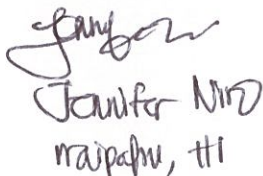 Jennifer Niro
Waipahu, HI